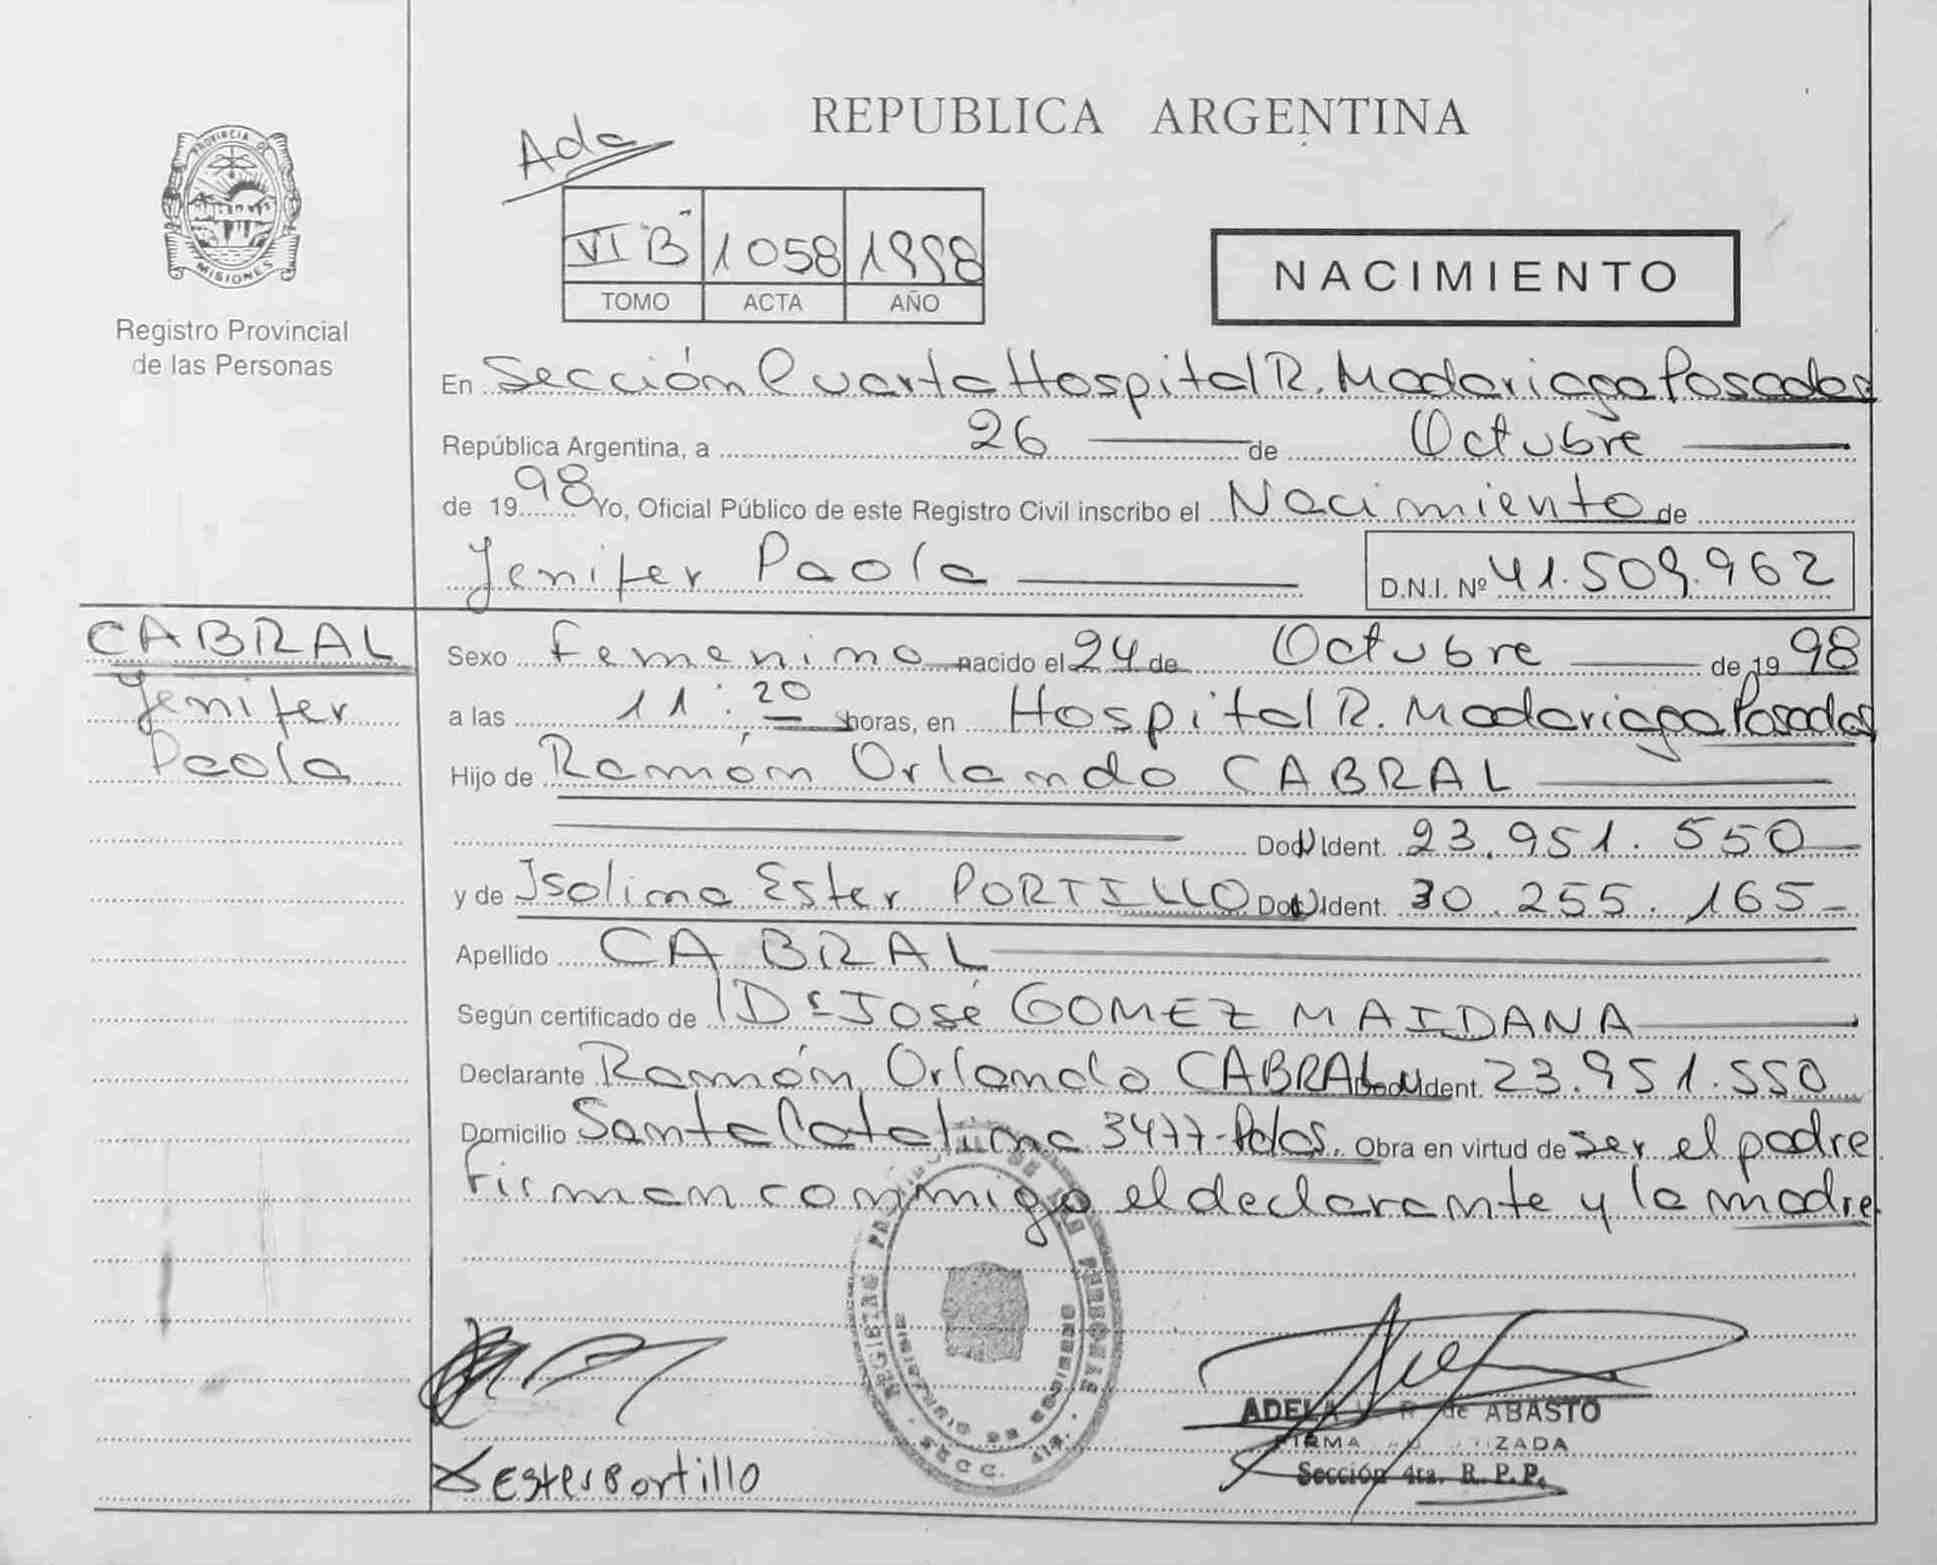 REPUBLICA ARGENTINA
Ada
PROVINCIA DE
MISIONES
Registro Provincial
de las Personas
VI "B" 1058 1998
TOMO ACTA AÑO
NACIMIENTO
En Sección Cuarta Hospital R. Madariaga Posadas
República Argentina, a 26 de Octubre
de 1998 Yo, Oficial Público de este Registro Civil inscribo el Nacimiento de
Jenifer Paola D.N.I. Nº 41.509.962
CABRAL
Jenifer
Paola
Sexo Femenino nacido el 24 de Octubre de 1998
a las 11:20 horas, en Hospital R. Madariaga Posadas
Hijo de Ramón Orlando CABRAL
Doc. Ident. 23.951.550
y de Isolina Ester PORTILLO Doc. Ident. 30.255.165
Apellido CABRAL
Según certificado de Dr José GOMEZ MAIDANA
Declarante Ramón Orlando CABRAL Doc. Ident. 23.951.550
Domicilio Santa Catalina 3477-Pdas. Obra en virtud de ser el padre
Firman conmigo el declarante y la madre
ADELA R. de ABASTO
FIRMA AUTORIZADA
Sección 4ta. R. P. P.
Ester Portillo